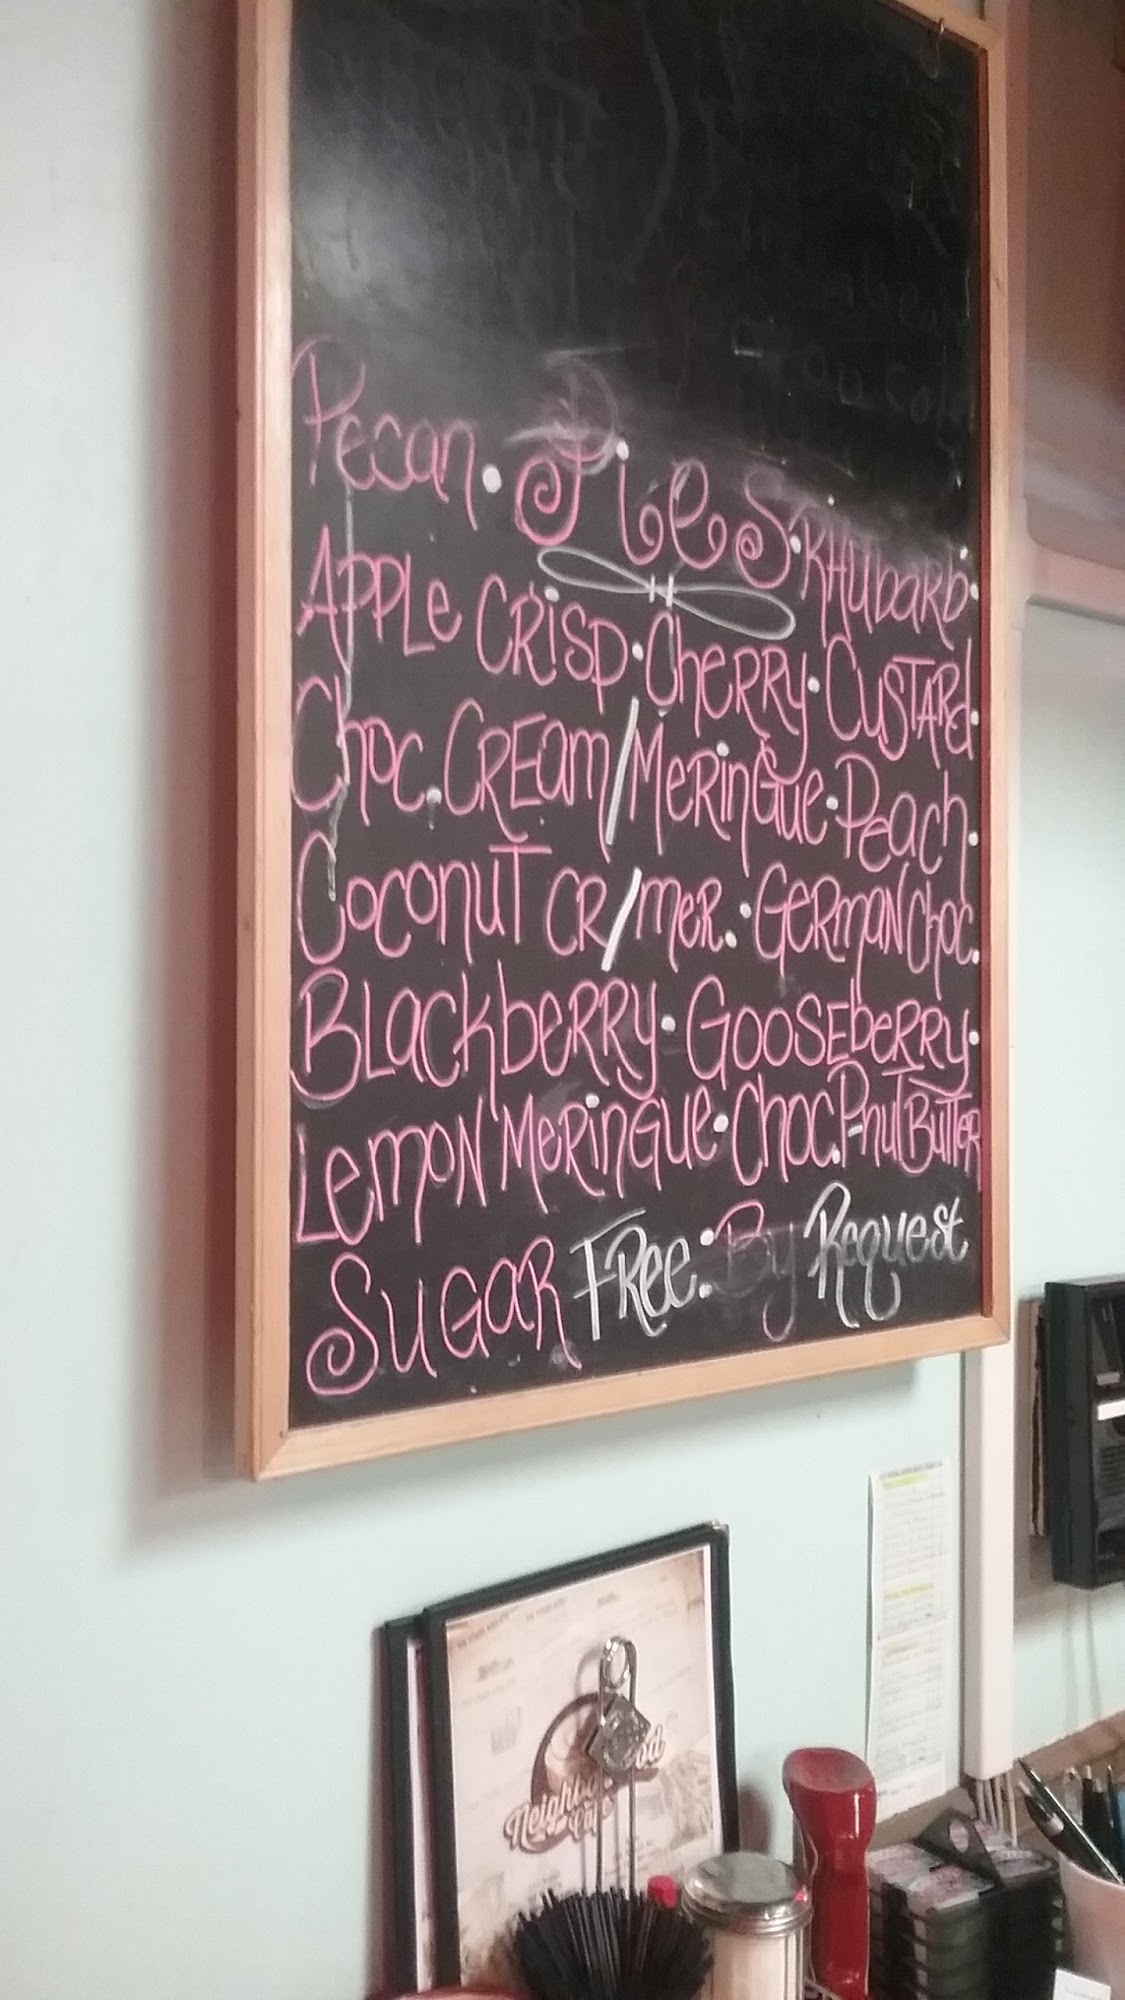 Pecan • Pies • Rhubarb •
Apple Crisp • Cherry • Custard •
Choc. Cream / Meringue • Peach •
Coconut Cr / mer. • German Choc.
Blackberry • Gooseberry •
Lemon Meringue • Choc. P-nut Butter
Sugar Free: By Request
Neighborhood
Cafe